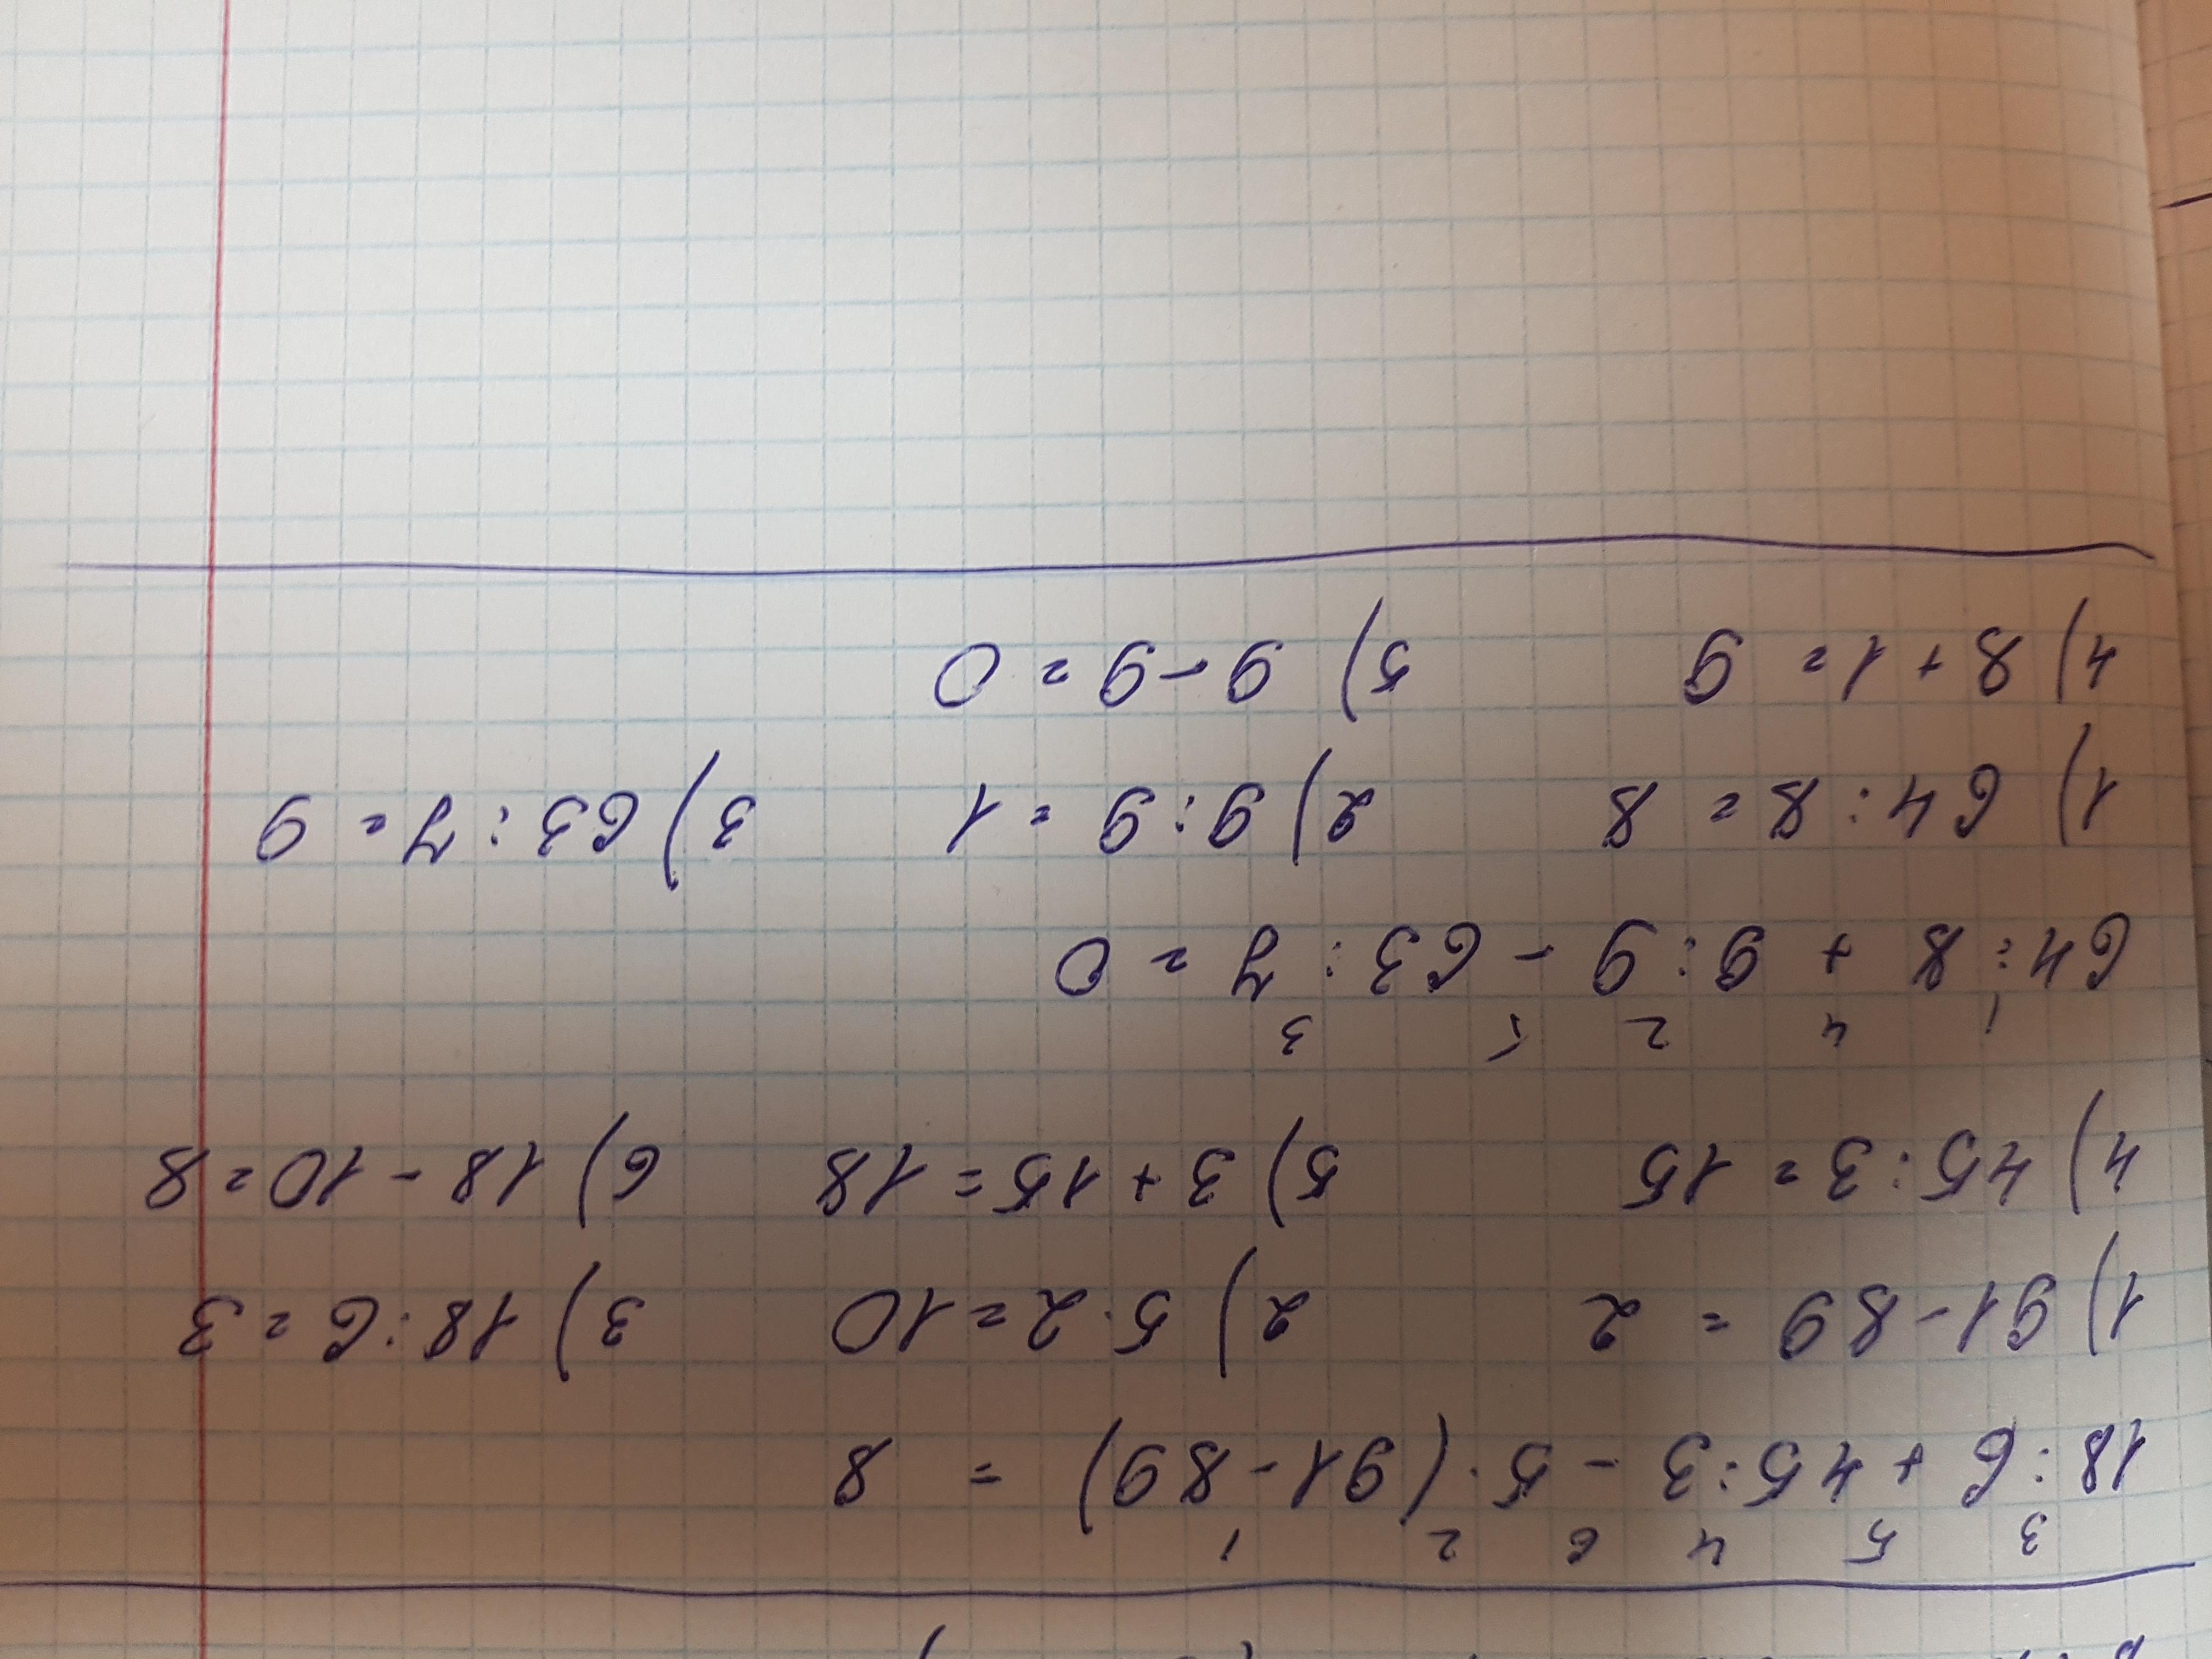 3 5 4 6 2 1
18:6 + 45:3 - 5·(91-89) = 8
1) 91-89 = 2 2) 5·2=10 3) 18:6=3
4) 45:3=15 5) 3+15=18 6) 18-10=8
1 4 2 5 3
64:8 + 9:9 - 63:7=0
1) 64:8=8 2) 9:9=1 3) 63:7=9
4) 8+1=9 5) 9-9=0